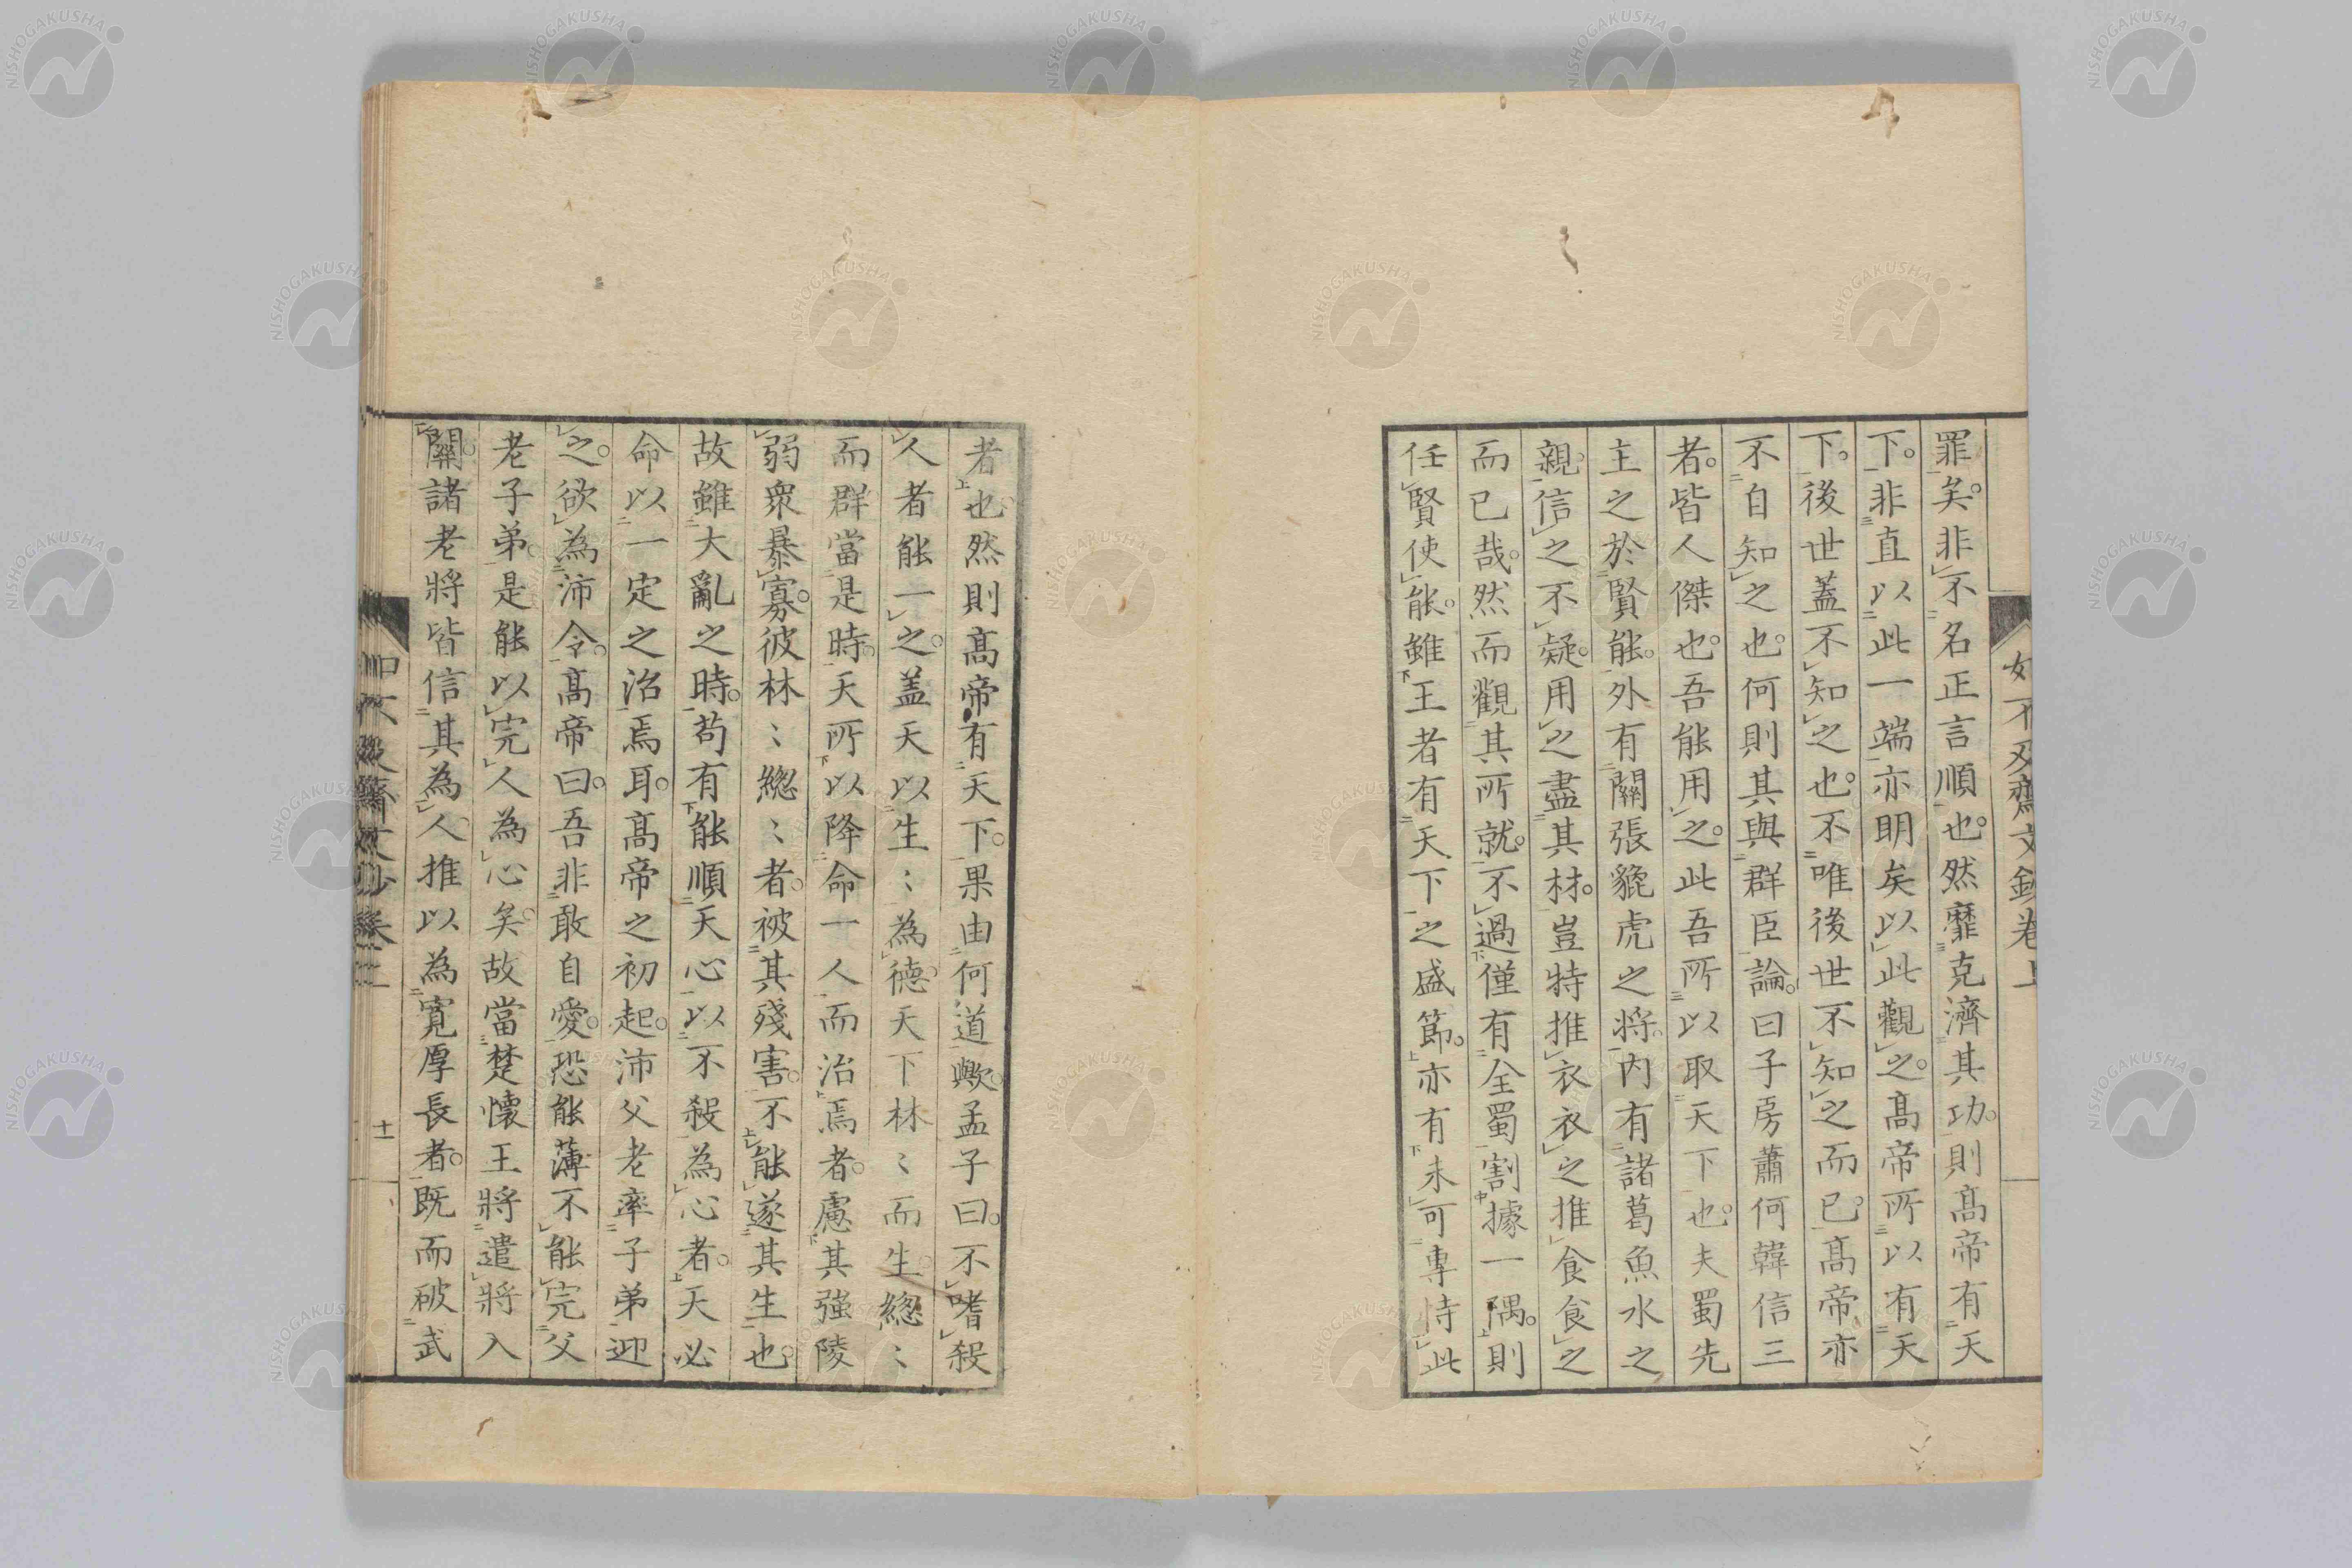 如不及齋文鈔卷上
罪矣。非不名正言順也。然靡克濟其功。則髙帝有天
下。非直以此一端亦明矣以此觀之。髙帝所以有天
下。後世蓋不知之也。不唯後世不知之而已。髙帝亦
不自知之也。何則其與群臣論。曰子房蕭何韓信三
者。皆人傑也。吾能用之。此吾所以取天下也。夫蜀先
主之於賢能。外有關張貔虎之將。内有諸葛魚水之
親。信之不疑。用之盡其材。豈特推衣衣之推食食之
而已哉。然而觀其所就。不過僅有全蜀割據一隅。則
任賢使能。雖王者有天下之盛節。亦有未可專恃此
者也然則髙帝有天下。果由何道歟。孟子曰。不嗜殺
人者能一之。蓋天以生〻為德。天下林〻而生。總〻
而群當是時。天所以降命一人而治焉者。慮其強陵
弱衆暴寡。彼林〻總〻者。被其殘害。不能遂其生也。
故雖大亂之時。苟有能順天心以不殺為心者。天必
命以一定之治焉耳。髙帝之初起。沛父老率子弟迎
之。欲為沛令。髙帝曰。吾非敢自愛。恐能薄不能完父
老子弟。是能以完人為心矣。故當楚懷王將遣將入
關。諸老將皆信其為人。推以為寛厚長者。既而破武
十一